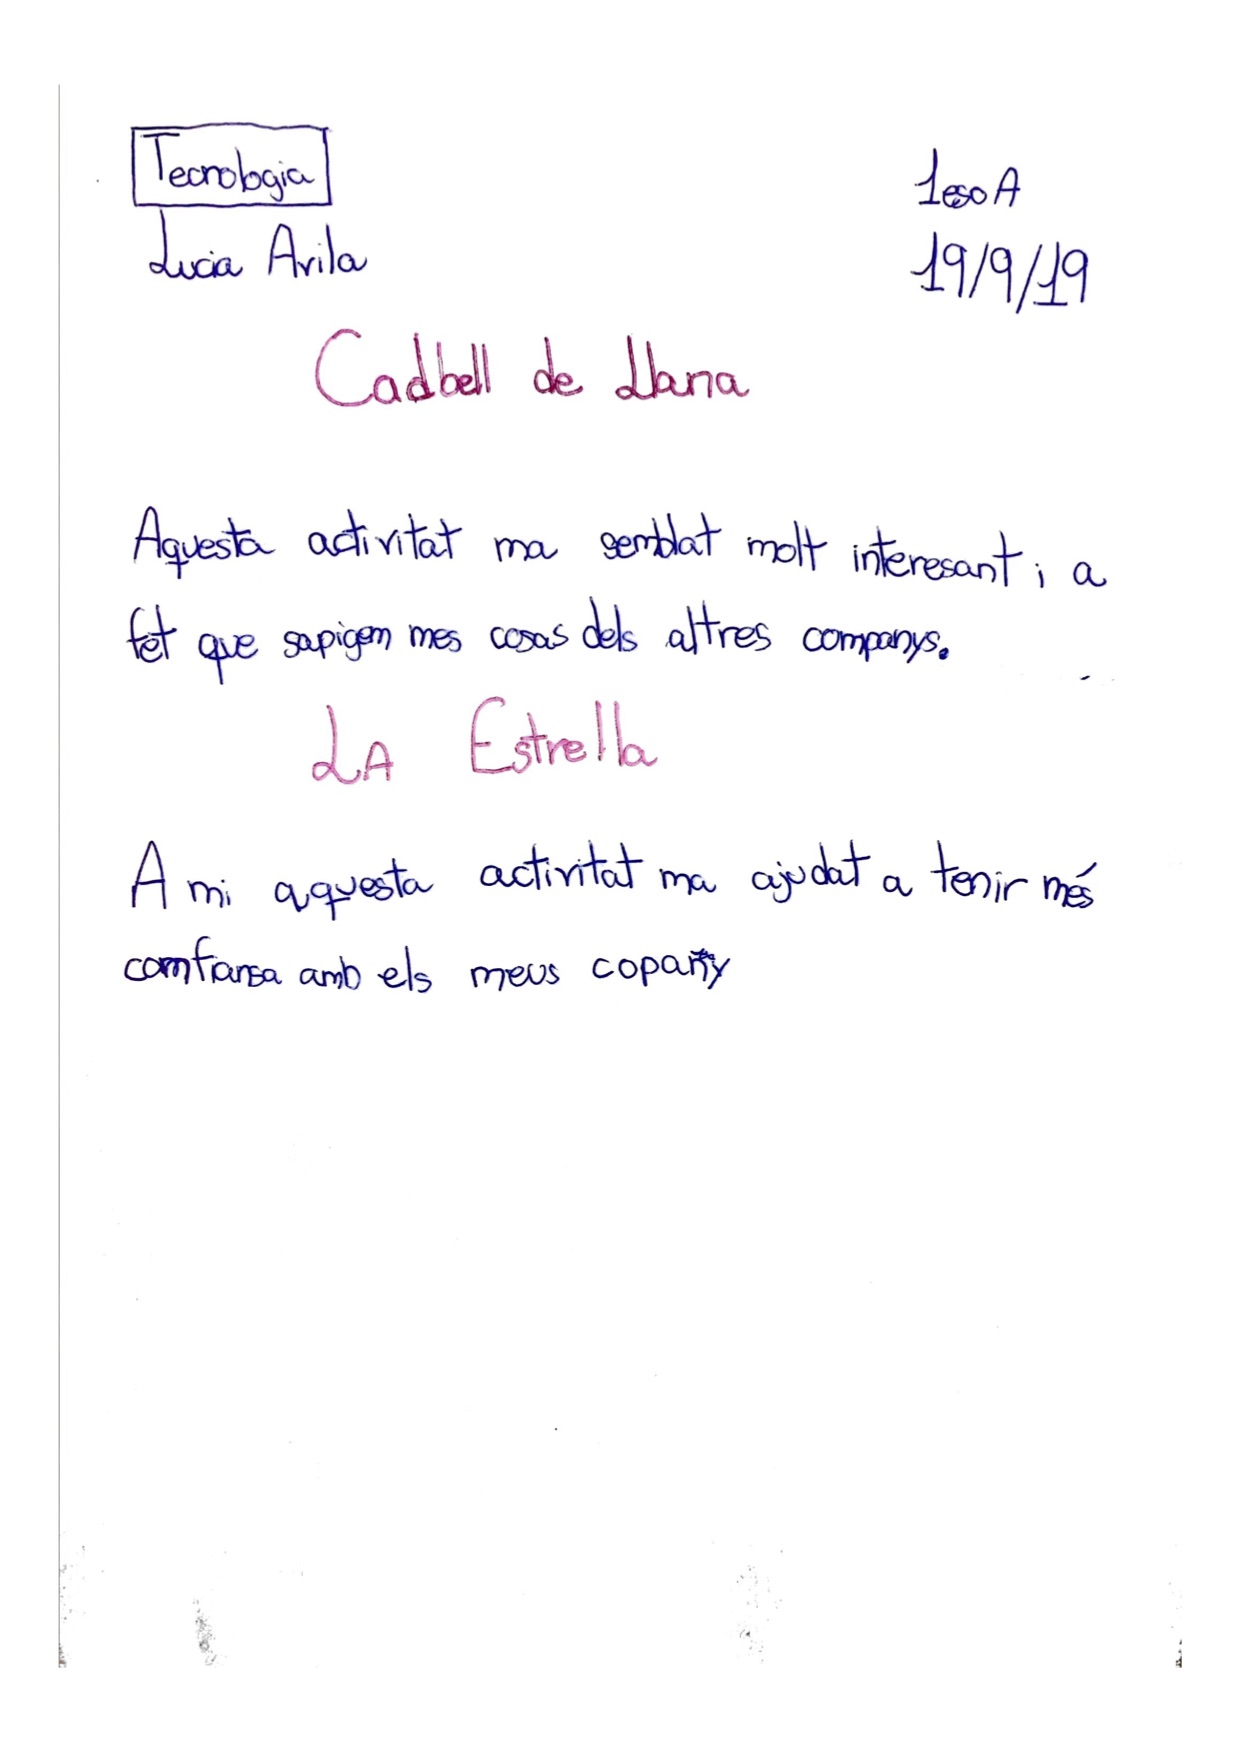 Tecnologia
1esoA
Lucia Avila
19/9/19
Cadbell de Llana
Aquesta activitat ma semblat molt interesant i a
fet que sapigem mes cosas dels altres companys.
LA Estrella
A mi aquesta activitat ma ajudat a tenir més
comfiansa amb els meus